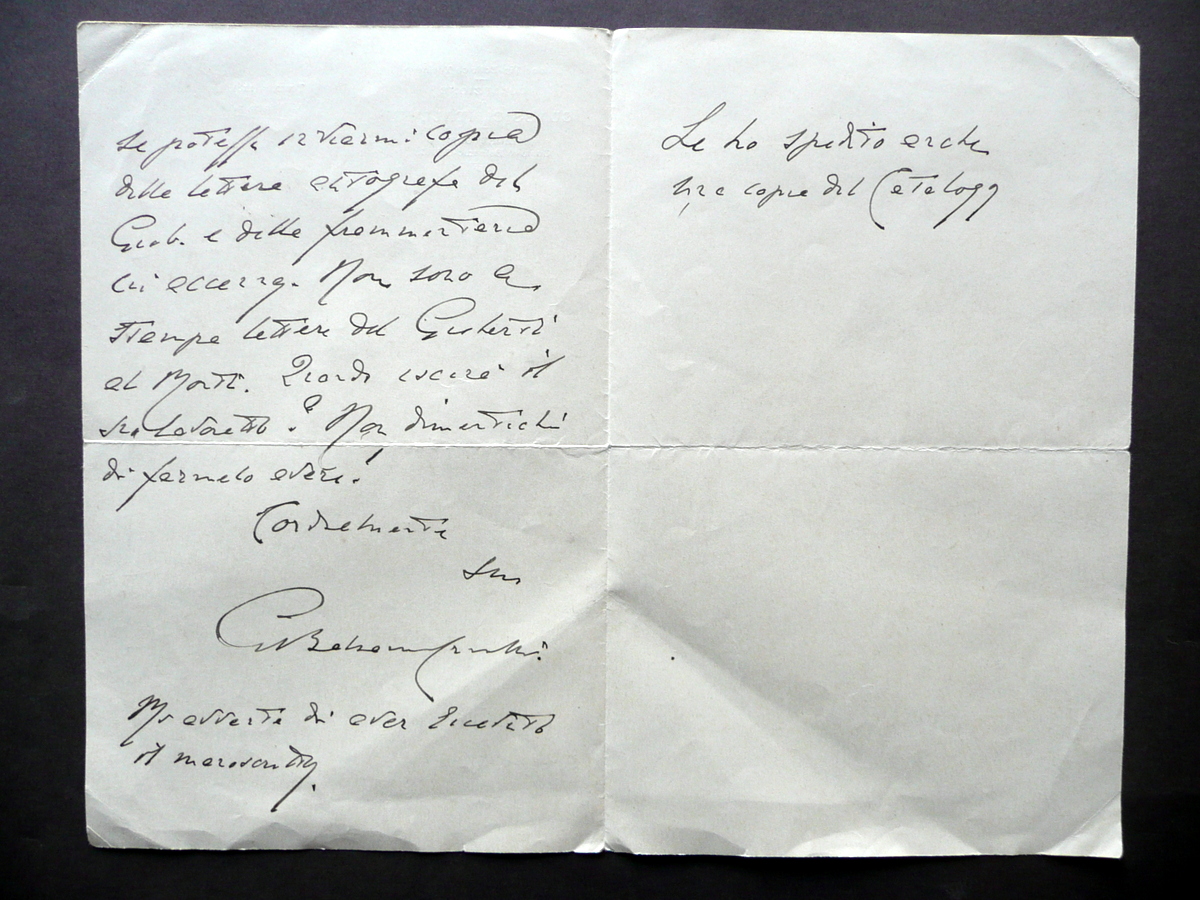 se potesse inviarmi copia
delle lettere autografe del
Giob. e della frammentaria
cui accenna. Non sono a
stampa lettere del Gioberti
al Monti. Quando uscirà il
suo lavoretto? Non dimentichi
di farmelo avere!
Cordialmente
suo
Mi avverta di aver ricevuto
il manoscritto.
Le ho spedito anche
una copia del Catalogo